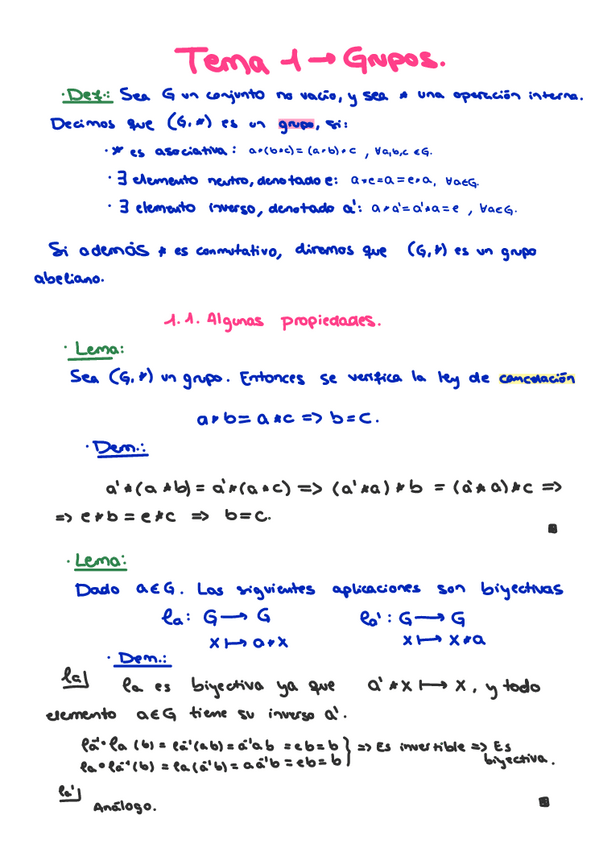 Tema 1 → Grupos.
· Def.: Sea G un conjunto no vacío, y sea * una operación interna.
Decimos que (G,*) es un grupo, si:
· * es asociativa: a*(b*c) = (a*b)*c , ∀a,b,c ∈G.
· ∃ elemento neutro, denotado e: a*e=a=e*a, ∀a∈G.
· ∃ elemento inverso, denotado a': a*a'=a'*a=e , ∀a∈G.
Si además * es conmutativo, diremos que (G,*) es un grupo
abeliano.
1.1. Algunas propiedades.
· Lema:
Sea (G,*) un grupo. Entonces se verifica la ley de cancelación
a*b = a*c => b=c.
· Dem.:
a'*(a*b) = a'*(a*c) => (a'*a)*b = (a'*a)*c =>
=> e*b = e*c => b=c.
· Lema:
Dado a∈G. Las siguientes aplicaciones son biyectivas
la: G → G la': G → G
x ↦ a*x x ↦ x*a
· Dem.:
la] la es biyectiva ya que a'*x ↦ x, y todo
elemento a∈G tiene su inverso a'.
la⁻¹∘la (b) = la⁻¹(ab) = a⁻¹ab = eb = b } => Es invertible => Es
la∘la⁻¹(b) = la(a⁻¹b) = aa⁻¹b = eb = b biyectiva.
la']
Análogo.